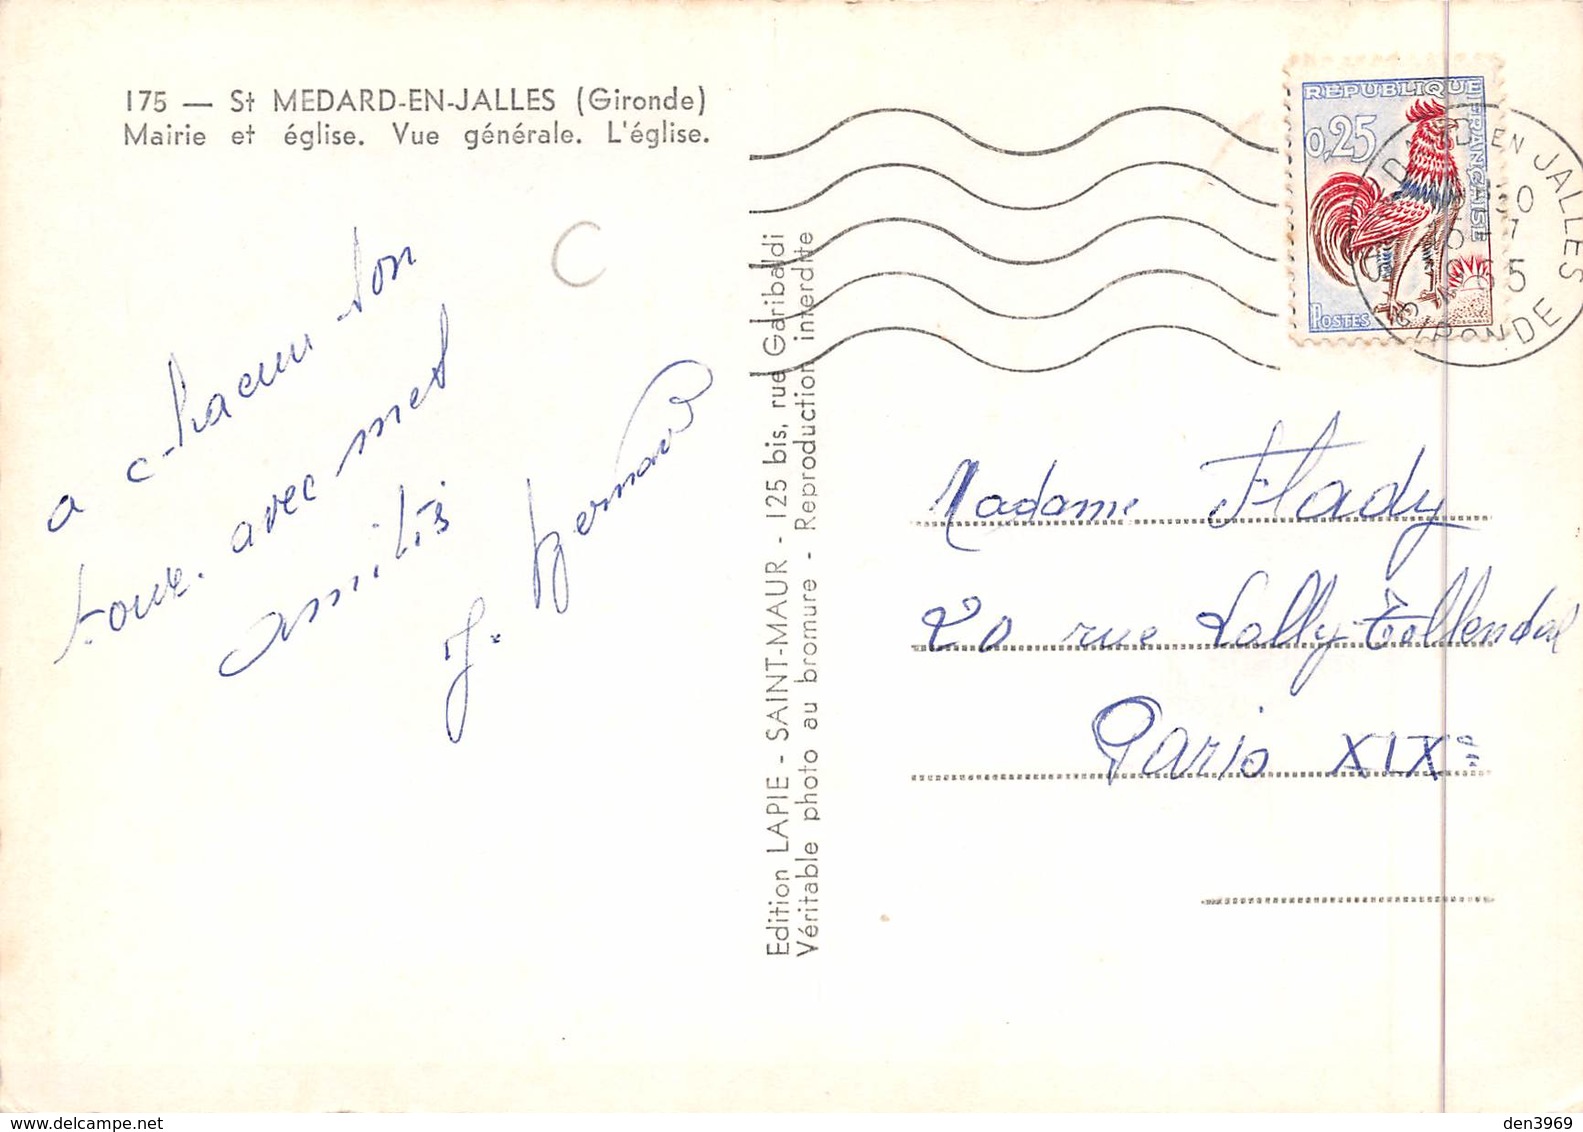 175 — St MEDARD-EN-JALLES (Gironde)
Mairie et église. Vue générale. L'église.
C
a chacun son
tour. avec mes
amitiés
J. Bernard
Edition LAPIE - SAINT-MAUR - 125 bis, rue Garibaldi
Véritable photo au bromure - Reproduction interdite
REPUBLIQUE FRANÇAISE
0,25
POSTES
EN JALLES
1965
GIRONDE
Madame Flady
20 rue Lally-Tollendal
Paris XIXe
den3969